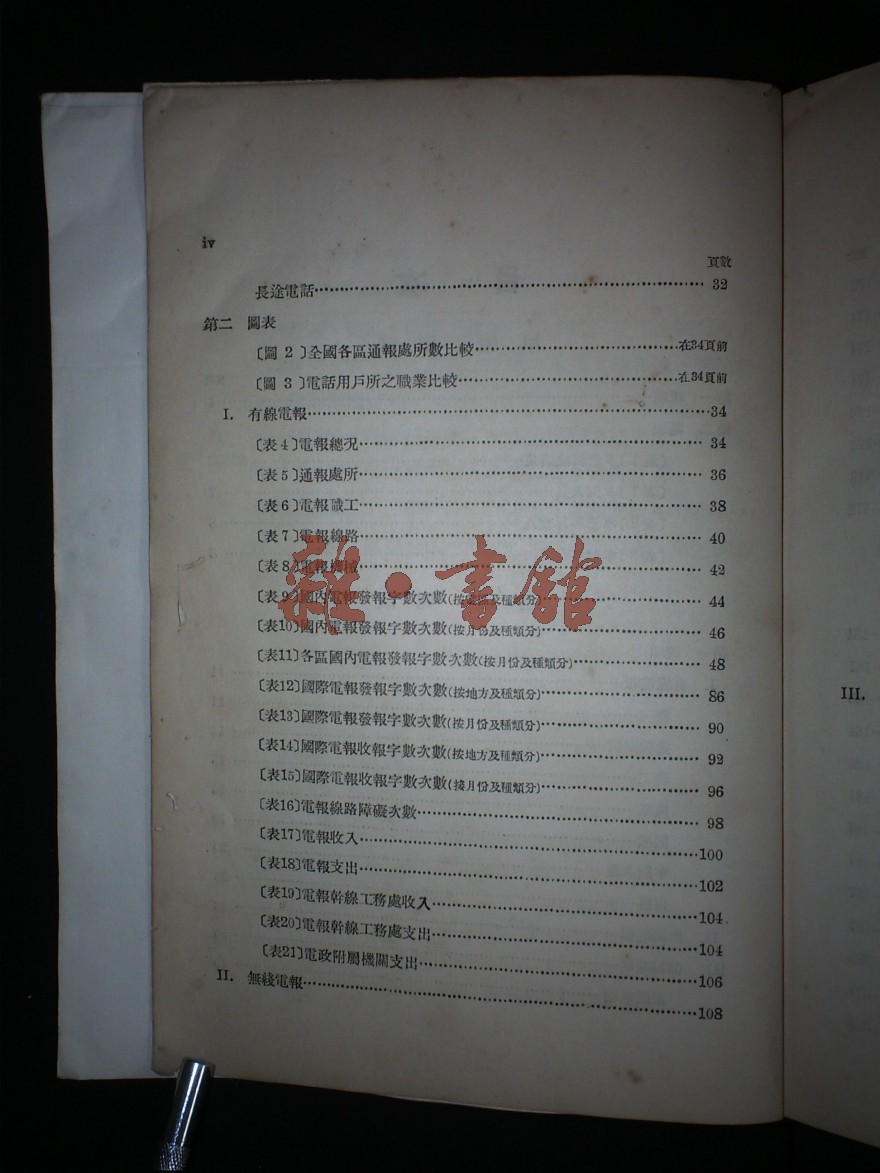 iv
頁數
長途電話 32
第二 圖表
〔圖 2〕全國各區通報處所數比較 在34頁前
〔圖 3〕電話用戶所之職業比較 在34頁前
I. 有線電報 34
〔表4〕電報總況 34
〔表5〕通報處所 36
〔表6〕電報職工 38
〔表7〕電報線路 40
〔表8〕電報機械 42
〔表9〕國內電報發報字數次數(按區及種類分) 44
〔表10〕國內電報發報字數次數(按月份及種類分) 46
〔表11〕各區國內電報發報字數次數(按月份及種類分) 48
〔表12〕國際電報發報字數次數(按地方及種類分) 86
〔表13〕國際電報發報字數次數(按月份及種類分) 90
〔表14〕國際電報收報字數次數(按地方及種類分) 92
〔表15〕國際電報收報字數次數(按月份及種類分) 96
〔表16〕電報線路障礙次數 98
〔表17〕電報收入 100
〔表18〕電報支出 102
〔表19〕電報幹線工務處收入 104
〔表20〕電報幹線工務處支出 104
〔表21〕電政附屬機關支出 106
II. 無綫電報 108
III.
雜·書館